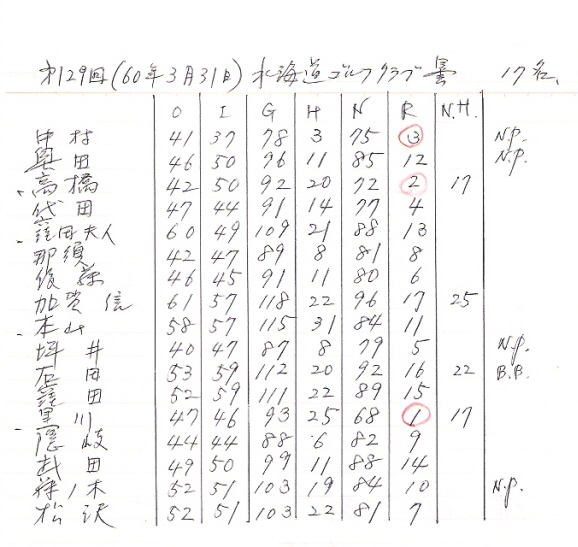 第129回(60年3月31日) 北海道ゴルフクラブ 曇 17名.
O I G H N R N.H.
中村 41 37 78 3 75 3 N.P.
奥田 46 50 96 11 85 12 N.P.
高橋 42 50 92 20 72 2 17
袋田 47 44 91 14 77 4
窪田夫人 60 49 109 21 88 13
那須 42 47 89 8 81 8
後藤 46 45 91 11 80 6
加賀信 61 57 118 22 96 17 25
本山 58 57 115 31 84 11
坪井 40 47 87 8 79 5 N.P.
石田 53 59 112 20 92 16 22 B.B.
窪田 52 59 111 22 89 15
黒川 47 46 93 25 68 1 17
隠岐 44 44 88 6 82 9
武田 49 50 99 11 88 14
藤ノ木 52 51 103 19 84 10 N.P.
松沢 52 51 103 22 81 7